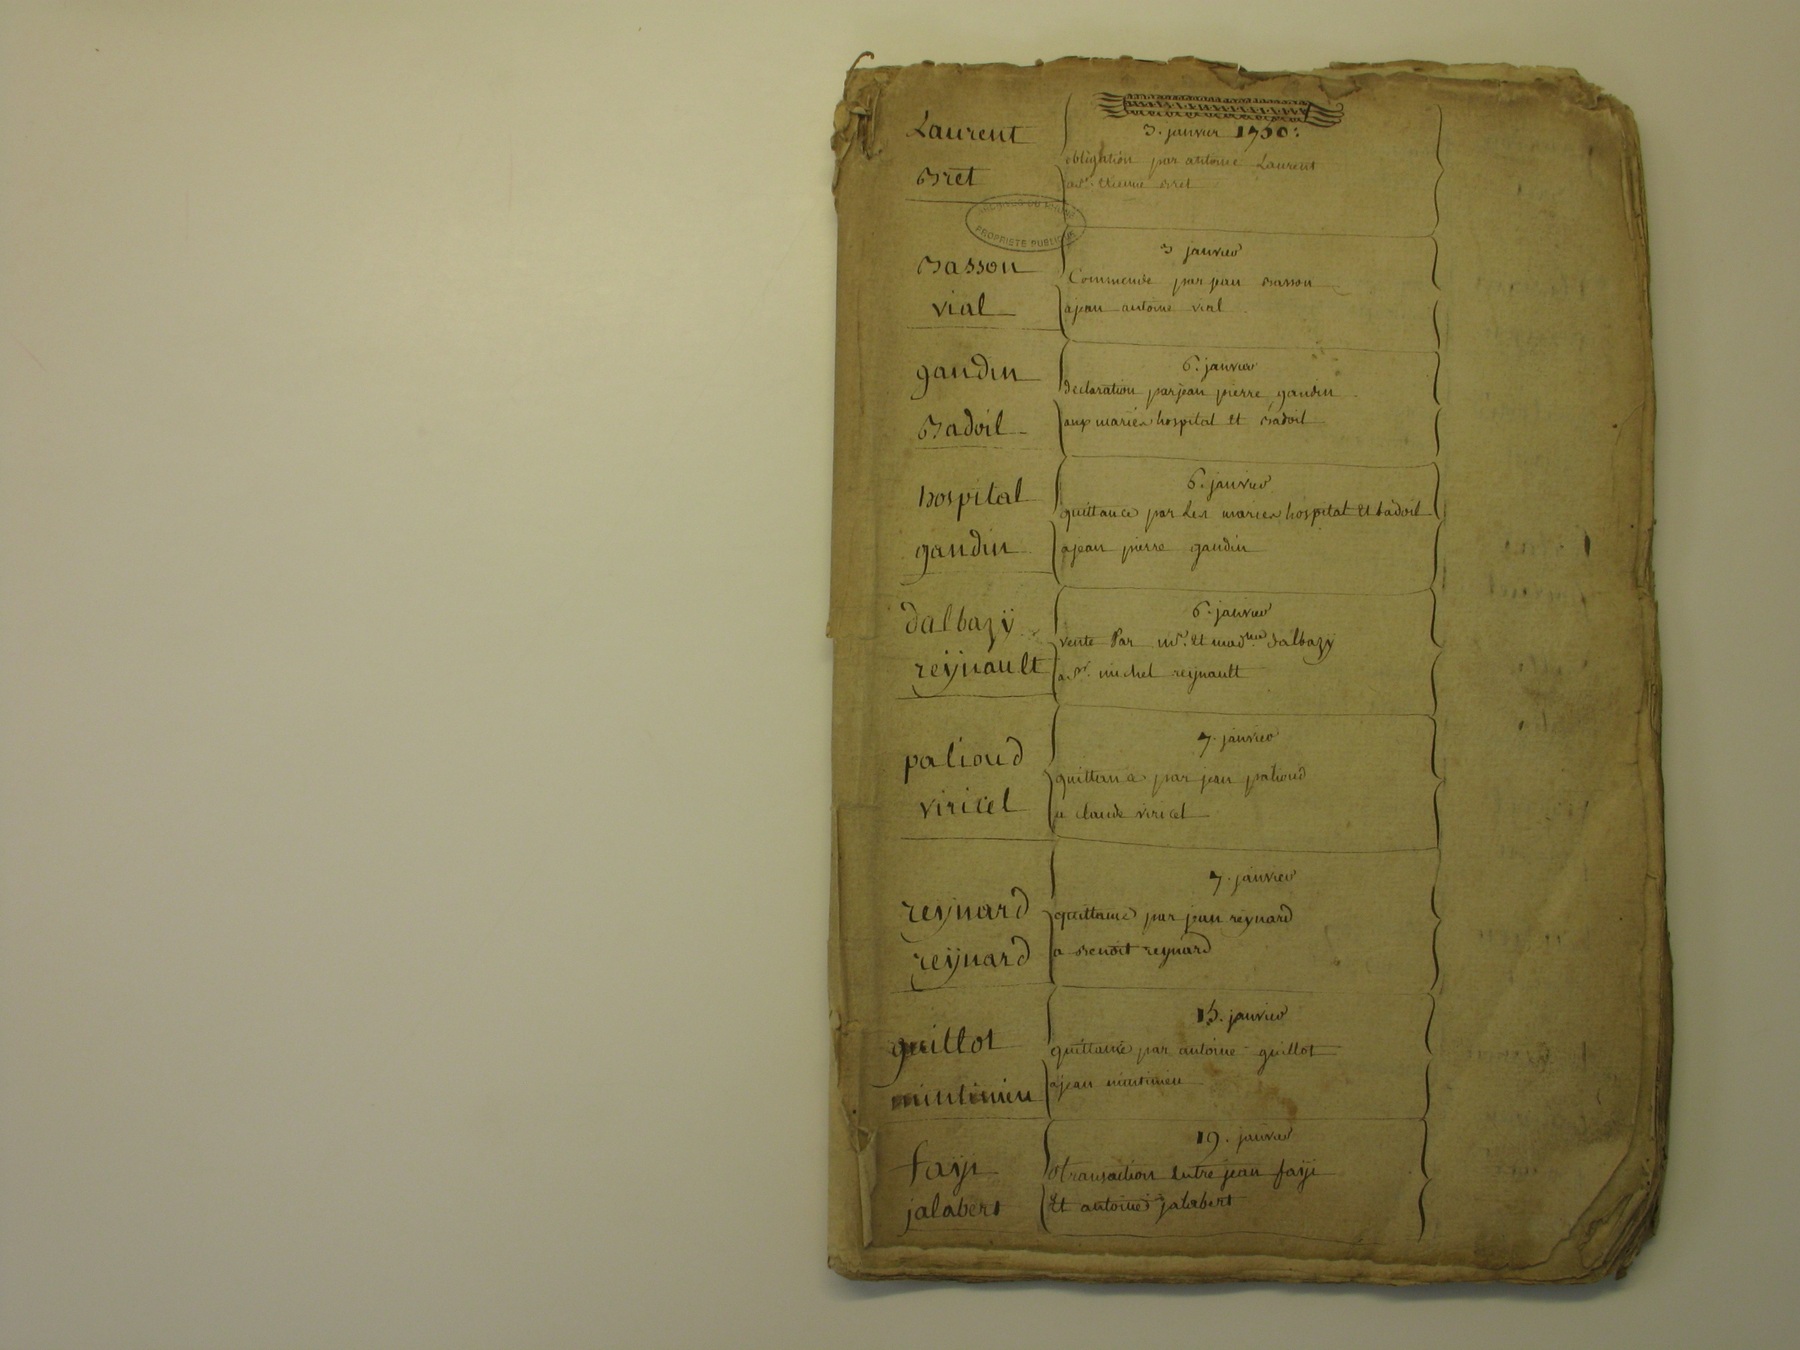 Laurent
Bret
3. janvier 1730:
obligation par antoine Laurent
a sr. etienne Bret
ARCHIVES DU RHONE
PROPRIETE PUBLIQUE
Basson
vial
3 janvier
Commende par jean Basson
a jean antoine vial
gaudin
Badoil
6. janvier
declaration par jean pierre gaudin
aux mariés hospital et Badoil
hospital
gaudin
6. janvier
quittance par Les mariés hospital Et badoil
a jean pierre gaudin
dalbazÿ
reÿnault
6. janvier
vente Par mr. Et madme dalbazy
a Sr. michel reÿnault
palioud
viricel
7. janvier
quittance par jean palioud
a claude viricel
reÿnard
reÿnard
7. janvier
quittance par jean reynard
a Benoit reynard
guillot
15. janvier
quittance par antoine guillot
a jean
faÿe
jalabert
19. janvier
transaction Entre jean faÿe
Et antoine jalabert